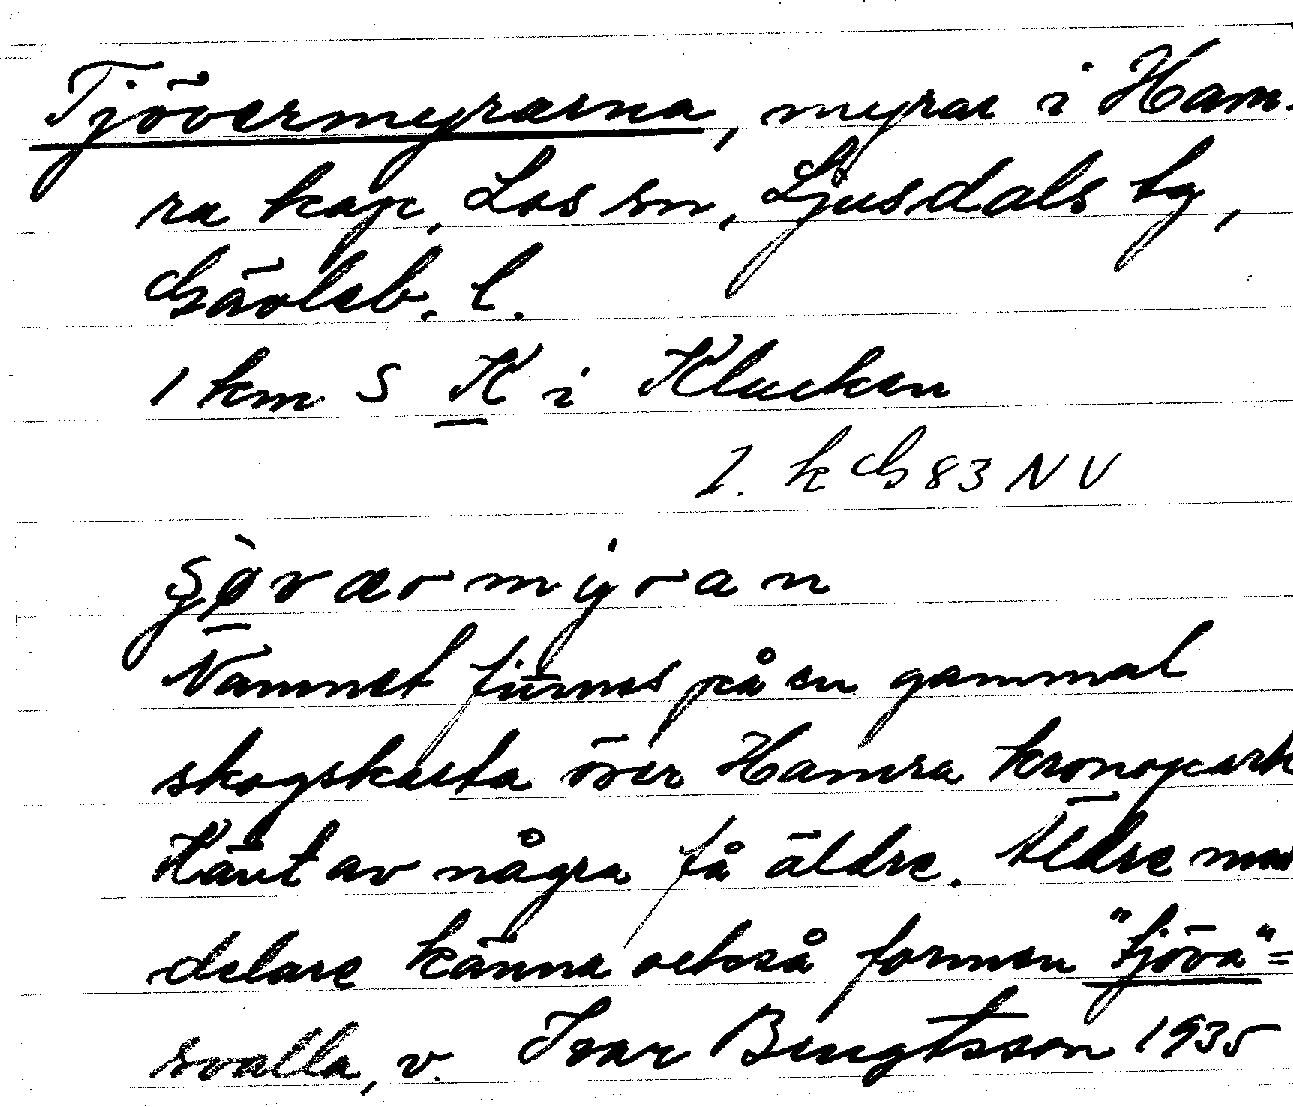 Tjövermyrarna, myrar i Ham-
ra kap, Los sn, Ljusdals tg,
Gävleb. l.
1 km S K i Klucken
I. k G 83 NV
myran
Namnet finnes på en gammal
skogskarta över Hamra kronopark
Känt av några få äldre. Äldre med
delare känna också formen "tjöva"=
svalla, v. Ivar Bengtsson 1935